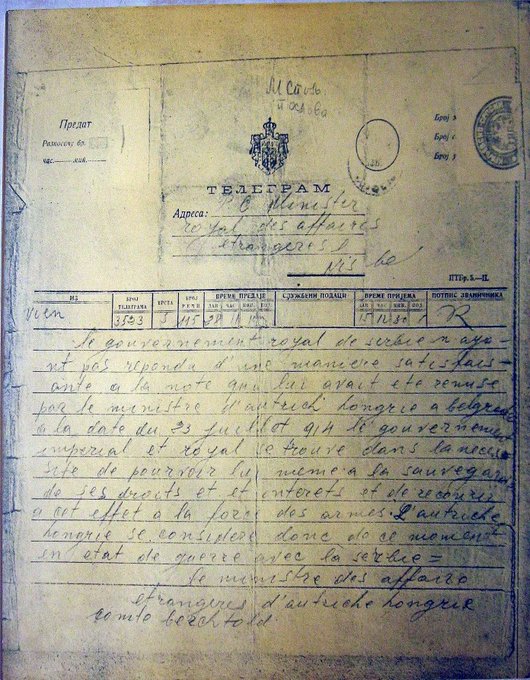 М Спољ.
послова
Предат
Разносачу бр.
час. мин.
Број
Број
Број
ТЕЛЕГРАМ
Адреса:
Minister
royal des affaires
etrangeres
Nis
ПТБр. 5.—II.
ИЗ БРОЈ ТЕЛЕГРАМА ВРСТА БРОЈ РЕЧИ ВРЕМЕ ПРЕДАЈЕ СЛУЖБЕНИ ПОДАЦИ ВРЕМЕ ПРИЈЕМА ПОТПИС ЗВАНИЧНИКА
ДАН ЧАС МИН. ДАН ЧАС МИН.
Vien 3523 5 115 28
le gouvernement royal de serbie n aya-
nt pas repondu d'une maniere satisfais-
ante a la note qui lui avait ete remise
par le ministre d'autriche hongrie a belgrade
a la date du 23 juillet 914 le gouvernement
imperial et royal se trouve dans la neces-
site de pourvoir lui meme a la sauvegarde
de ses droits et et interets et de recourir
a cet effet a la force des armes. L'autriche
hongrie se considere donc de ce moment
en etat de guerre avec la serbie =
le ministre des affaire
etrangeres d'autriche hongrie
comte berchtold